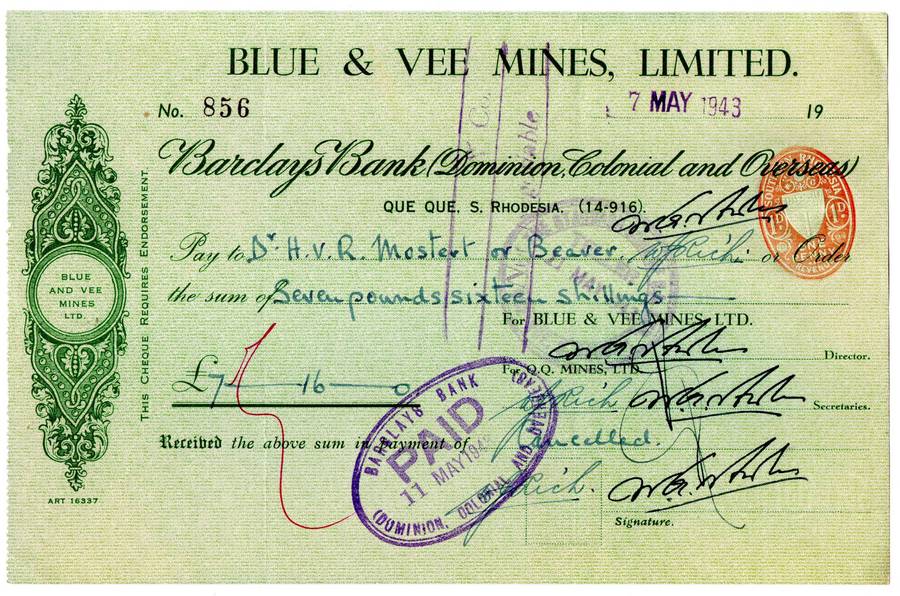 BLUE & VEE MINES, LIMITED.
No. 856
7 MAY 1943
19
Barclays Bank (Dominion, Colonial and Overseas)
QUE QUE, S. RHODESIA. (14-916).
Pay to Dr H.V.R. Mostert or Beaver. or Order
the sum of Seven pounds sixteen shillings
For BLUE & VEE MINES, LTD.
Director.
For Q.Q. MINES, LTD.
£7 - 16 - 0
Secretaries.
Received the above sum in payment of
Cancelled.
Signature.
BARCLAYS BANK
PAID
11 MAY 194
(DOMINION, COLONIAL AND OVERSEAS)
BLUE
AND VEE
MINES
LTD.
THIS CHEQUE REQUIRES ENDORSEMENT.
ART 16337
& Co.
REVENUE
1D